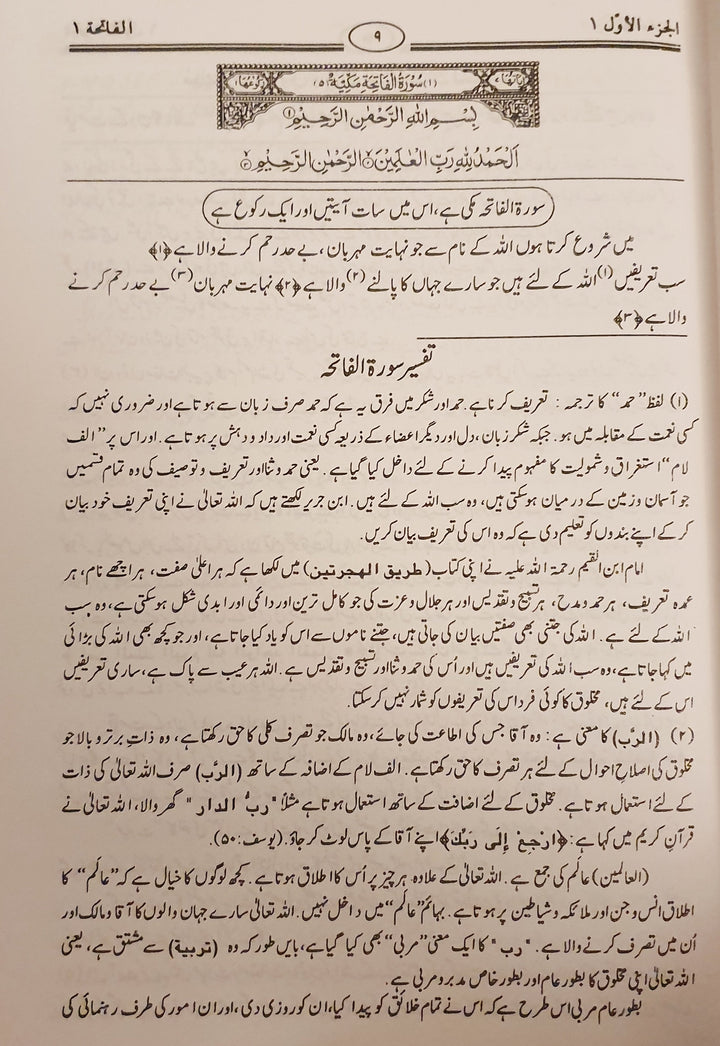 الجزء الأوّل ١
٩
الفاتحة ١
(١) سُوْرَةُ الْفَاتِحَةِ مَكِّيَّةٌ (٥)
بِسْمِ اللهِ الرَّحْمٰنِ الرَّحِيْمِ ﴿١﴾
اَلْحَمْدُ لِلّٰهِ رَبِّ الْعٰلَمِيْنَ ﴿٢﴾ الرَّحْمٰنِ الرَّحِيْمِ ﴿٣﴾
سورۃ الفاتحہ مکی ہے، اس میں سات آیتیں اور ایک رکوع ہے
میں شروع کرتا ہوں اللہ کے نام سے جو نہایت مہربان، بے حد رحم کرنے والا ہے ﴿۱﴾
سب تعریفیں (۱) اللہ کے لئے ہیں جو سارے جہاں کا پالنے (۲) والا ہے ﴿۲﴾ نہایت مہربان (۳) بے حد رحم کرنے
والا ہے ﴿۳﴾
تفسیر سورۃ الفاتحہ
(۱) لفظ ”حمد“ کا ترجمہ : تعریف کرنا ہے. حمد اور شکر میں فرق یہ ہے کہ حمد صرف زبان سے ہوتا ہے اور ضروری نہیں کہ
کسی نعمت کے مقابلہ میں ہو. جبکہ شکر زبان، دل اور دیگر اعضاء کے ذریعہ کسی نعمت اور داد و دہش پر ہوتا ہے. اور اس پر ”الف
لام“ استغراق و شمولیت کا مفہوم پیدا کرنے کے لئے داخل کیا گیا ہے. یعنی حمد و ثنا اور تعریف و توصیف کی وہ تمام قسمیں
جو آسمان و زمین کے درمیان ہوسکتی ہیں، وہ سب اللہ کے لئے ہیں. ابن جریر لکھتے ہیں کہ اللہ تعالیٰ نے اپنی تعریف خود بیان
کر کے اپنے بندوں کو تعلیم دی ہے کہ وہ اس کی تعریف بیان کریں.
امام ابن القیم رحمۃ اللہ علیہ نے اپنی کتاب (طريق الهجرتين) میں لکھا ہے کہ ہر اعلیٰ صفت، ہر اچھے نام، ہر
عمدہ تعریف، ہر حمد و مدح، ہر تسبیح و تقدیس اور ہر جلال و عزت کی جو کامل ترین اور دائمی اور ابدی شکل ہوسکتی ہے، وہ سب
اللہ کے لئے ہے. اللہ کی جتنی بھی صفتیں بیان کی جاتی ہیں، جتنے ناموں سے اس کو یاد کیا جاتا ہے، اور جو کچھ بھی اللہ کی بڑائی
میں کہا جاتا ہے، وہ سب اللہ کی تعریفیں ہیں اور اُس کی حمد و ثنا اور تسبیح و تقدیس ہے. اللہ ہر عیب سے پاک ہے، ساری تعریفیں
اس کے لئے ہیں، مخلوق کا کوئی فرد اس کی تعریفوں کو شمار نہیں کرسکتا.
(۲) (الرّب) کا معنی ہے : وہ آقا جس کی اطاعت کی جائے، وہ مالک جو تصرف کلی کا حق رکھتا ہے، وہ ذات برتر و بالا جو
مخلوق کی اصلاح احوال کے لئے ہر تصرف کا حق رکھتا ہے. الف لام کے اضافہ کے ساتھ (الرّب) صرف اللہ تعالیٰ کی ذات
کے لئے استعمال ہوتا ہے. مخلوق کے لئے اضافت کے ساتھ استعمال ہوتا ہے مثلاً "ربُّ الدار" گھر والا، اللہ تعالیٰ نے
قرآن کریم میں کہا ہے : ﴿ارْجِعْ إِلَى رَبِّكَ﴾ اپنے آقا کے پاس لوٹ کر جاؤ. (یوسف: ۵۰).
(العالمین) عالَم کی جمع ہے. اللہ تعالیٰ کے علاوہ ہر چیز پر اُس کا اطلاق ہوتا ہے. کچھ لوگوں کا خیال ہے کہ ”عالَم“ کا
اطلاق انس و جن اور ملائکہ و شیاطین پر ہوتا ہے. بہائم ”عالَم“ میں داخل نہیں. اللہ تعالیٰ سارے جہان والوں کا آقا و مالک اور
اُن میں تصرف کرنے والا ہے. "رب" کا ایک معنی ”مربی“ بھی کیا گیا ہے، بایں طور کہ وہ (تربية) سے مشتق ہے، یعنی
اللہ تعالیٰ اپنی مخلوق کا بطور عام اور بطور خاص مدبر و مربی ہے.
بطور عام مربی اس طرح ہے کہ اس نے تمام خلائق کو پیدا کیا، ان کو روزی دی، اور ان امور کی طرف رہنمائی کی